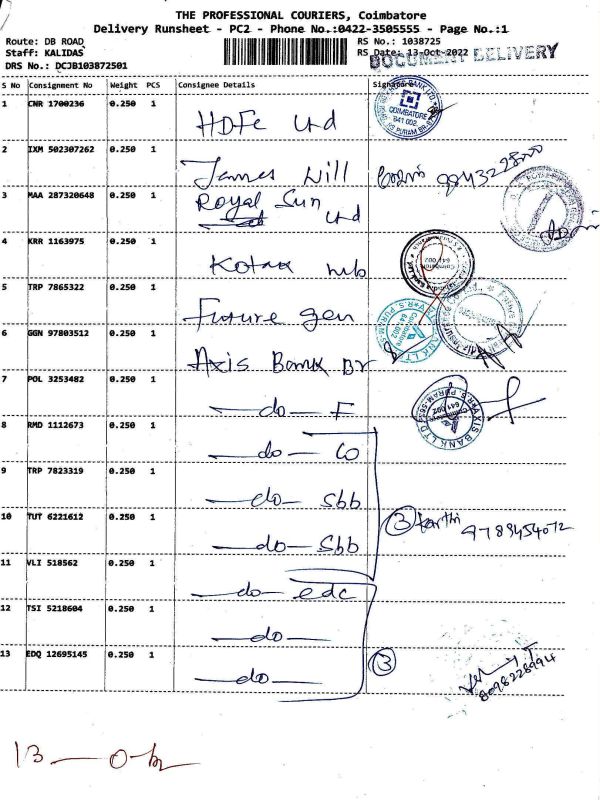 THE PROFESSIONAL COURIERS, Coimbatore
Delivery Runsheet - PC2 - Phone No.:0422-3505555 - Page No.:1
Route: DB ROAD RS No.: 1038725
Staff: KALIDAS RS Date: 13-Oct-2022
DOCUMENT DELIVERY
DRS No.: DCJB103872501
S No Consignment No Weight PCS Consignee Details Signature
1 CNR 1700236 0.250 1 HDFC Ltd
2 IXM 502307262 0.250 1 James Will
3 MAA 287320648 0.250 1 Royal Sun Ltd
4 KRR 1163975 0.250 1 Kotak
5 TRP 7865322 0.250 1 Future gen
6 GGN 97803512 0.250 1 Axis Bank Br
7 POL 3253482 0.250 1 —do— F
8 RMD 1112673 0.250 1 —do— Co
9 TRP 7823319 0.250 1 —do— Sbb
10 TUT 6221612 0.250 1 —do— Sbb 3 9789454072
11 VLI 518562 0.250 1 —do— edc
12 TSI 5218604 0.250 1 —do—
13 EDQ 12695145 0.250 1 —do— 3 8098228994
COIMBATORE
641 002
AXIS BANK LTD
Coimbatore
641 002
13 —